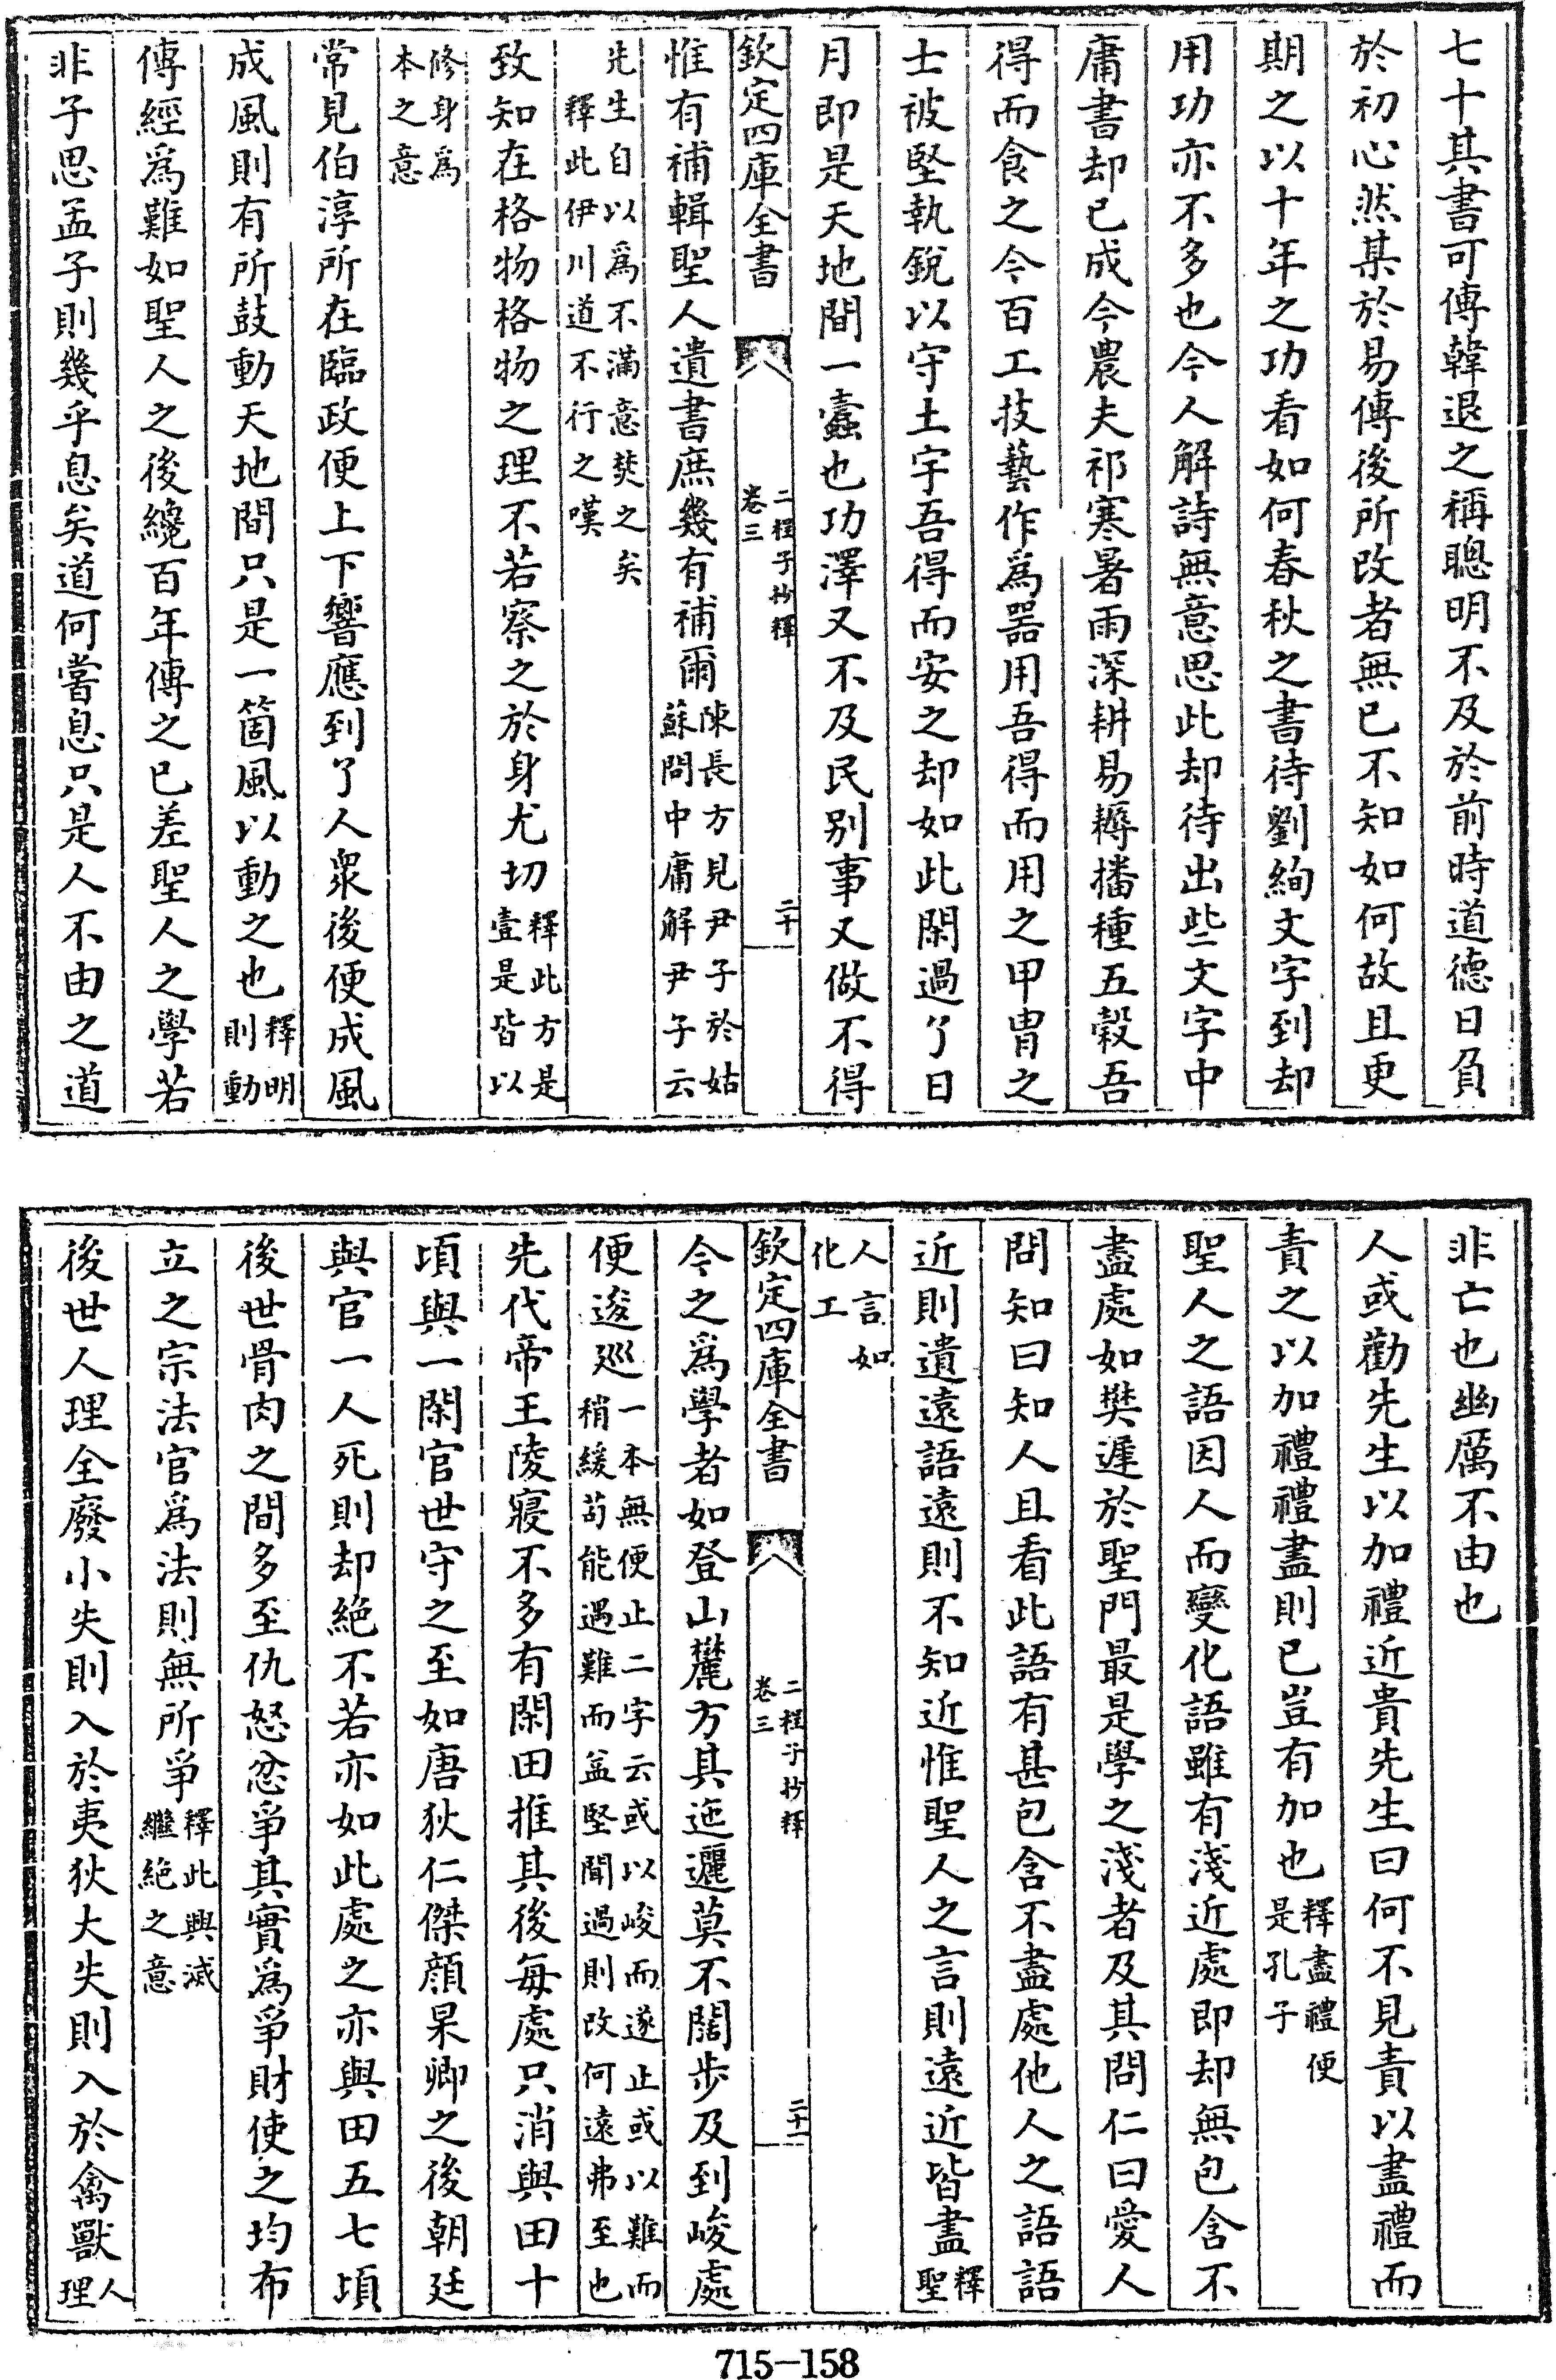 七十其書可傳韓退之稱聰明不及於前時道德日負
於初心然某於易傳後所改者無已不知如何故且更
期之以十年之功看如何春秋之書待劉絢文字到却
用功亦不多也今人解詩無意思此却待出些文字中
庸書却已成今農夫祁寒暑雨深耕易耨播種五穀吾
得而食之今百工技藝作為器用吾得而用之甲胄之
士被堅執銳以守土宇吾得而安之却如此閑過了日
月即是天地間一蠧也功澤又不及民别事又做不得
欽定四庫全書
二程子抄釋
卷三
二十
惟有補輯聖人遺書庶幾有補爾陳長方見尹子於姑
蘇問中庸解尹子云
先生自以為不滿意焚之矣
釋此伊川道不行之嘆
致知在格物格物之理不若察之於身尤切釋此方是
壹是皆以
修身為
本之意
常見伯淳所在臨政便上下響應到了人衆後便成風
成風則有所鼓動天地間只是一箇風以動之也釋明
則動
傳經為難如聖人之後纔百年傳之已差聖人之學若
非子思孟子則幾乎息矣道何嘗息只是人不由之道
非亡也幽厲不由也
人或勸先生以加禮近貴先生曰何不見責以盡禮而
責之以加禮禮盡則已豈有加也釋盡禮便
是孔子
聖人之語因人而變化語雖有淺近處即却無包含不
盡處如樊遲於聖門最是學之淺者及其問仁曰愛人
問知曰知人且看此語有甚包含不盡處他人之語語
近則遺遠語遠則不知近惟聖人之言則遠近皆盡釋
聖
人言如
化工
欽定四庫全書
二程子抄釋
卷三
二十一
今之為學者如登山麓方其迤邐莫不闊步及到峻處
便逡巡一本無便止二字云或以峻而遂止或以難而
稍緩苟能遇難而益堅聞過則改何遠弗至也
先代帝王陵寢不多有閑田推其後每處只消與田十
頃與一閑官世守之至如唐狄仁傑顔杲卿之後朝廷
與官一人死則却絶不若亦如此處之亦與田五七頃
後世骨肉之間多至仇怒忿爭其實為爭財使之均布
立之宗法官為法則無所爭釋此興滅
繼絶之意
後世人理全廢小失則入於夷狄大失則入於禽獸人
理
715-158